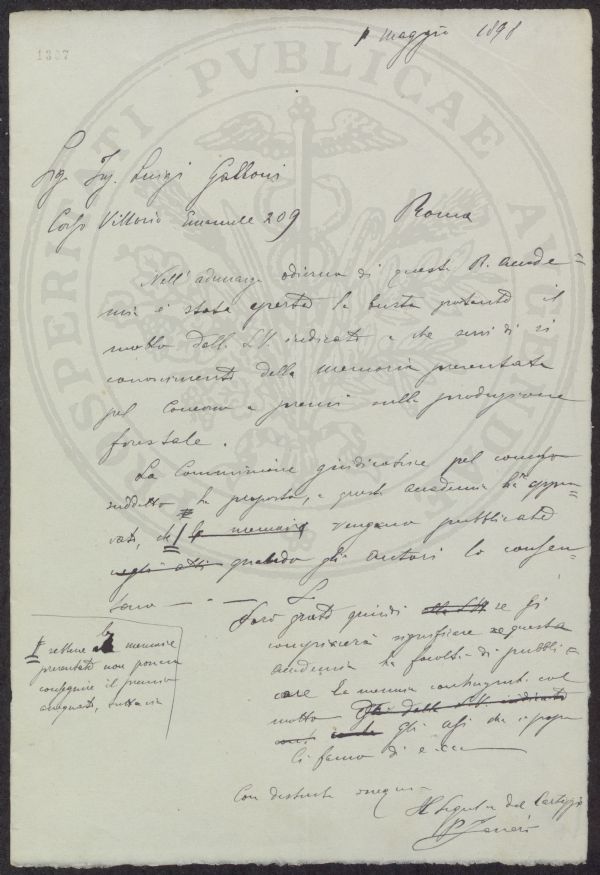 1 maggio 1898
1307
PROSPERITATI PUBLICAE AUGENDAE
Sig. Ing. Luigi Galloni
Corso Vittorio Emanuele 209 Roma
Nell' adunanza odierna di questa R. accade=
mia è stata aperta la busta portante il
motto dalla S.V. indicato e che servì di
conoscimento della memoria presentata
pel Concorso a premi sulla produzione
forestale.
La Commissione giudicatrice pel concorso
suddetto ha proposto, e questa accademia ha appro=
vato, che le memorie vengano pubblicate
negli atti quando gli autori lo consen=
tano
Sarò grato quindi alla S.V. se si
compiacerà significare se questa
accademia ha facoltà di pubbli=
care la memoria contrassegnata col
motto dalla S.V. indicato
gli
li fanno di
sebbene le memorie
presentate non possan
conseguire il premio
assegnato, tuttavia
Con distinta
Il Segret. del Carteggio